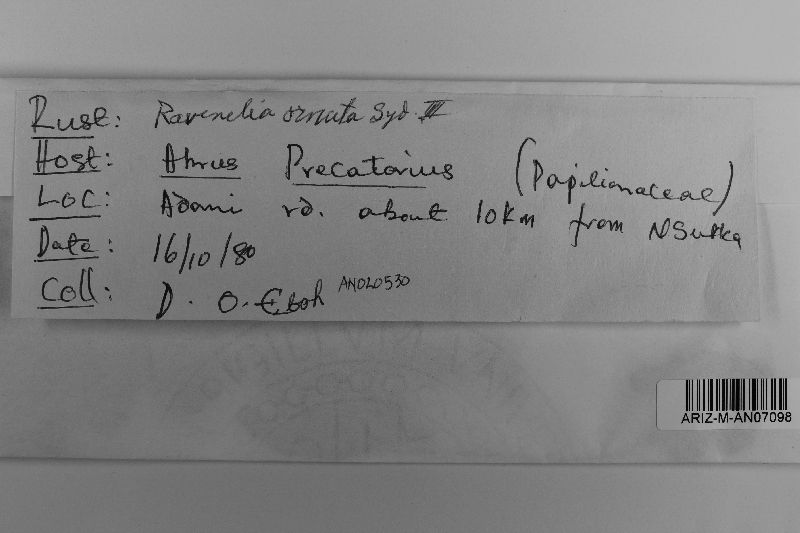 Rust: Ravenelia ornata Syd. III
Host: Abrus Precatorius (Papilionaceae)
Loc: Adani rd. about 10km from NSukka
Date: 16/10/80
Coll: D. O. Eboh AN020530
ARIZ-M-AN07098